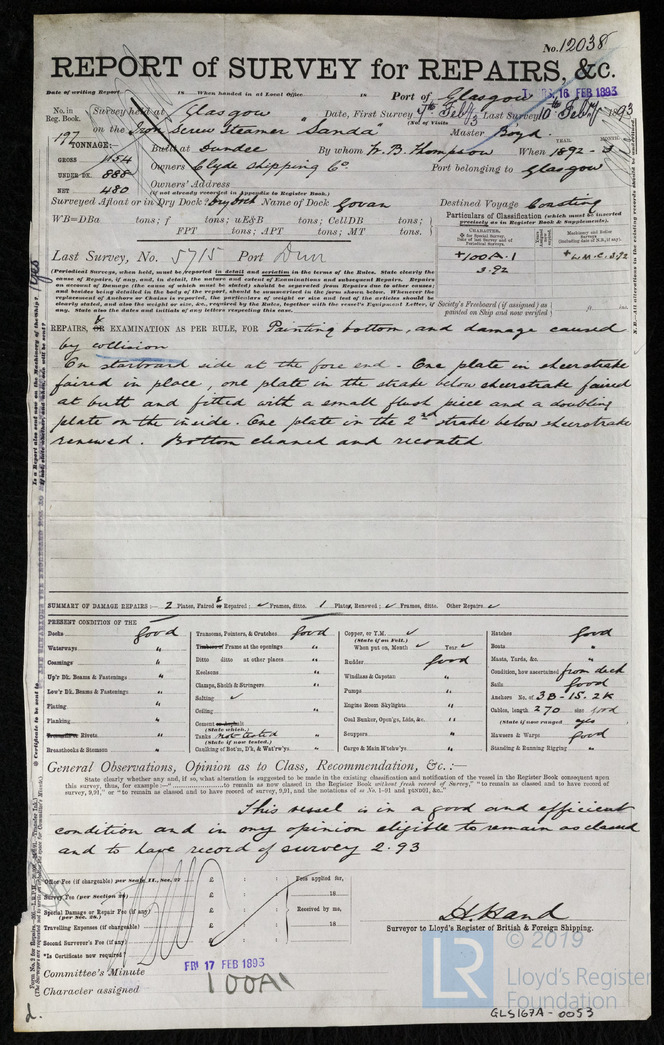 No. 12038
REPORT of SURVEY for REPAIRS, &c.
Date of writing Report 18 When handed in at Local Office 18 Port of Glasgow 16 FEB 1893
No. in Reg. Book. Survey held at Glasgow Date, First Survey 7th Feb/93 Last Survey 10th Feby 1893
(No. of Visits
197 on the Iron Screw Steamer "Sanda" Master Boyd
TONNAGE: Built at Dundee By whom W. B. Thompson When 1892 - 3
YEAR. MONTH.
GROSS 1154
UNDER DK. 888
NET 480
Owners Clyde Shipping Co. Port belonging to Glasgow
Owners' Address
(if not already recorded in Appendix to Register Book.)
Surveyed Afloat or in Dry Dock? Dry Dock Name of Dock Govan Destined Voyage Coasting
WB=DBa tons; f tons; uE&B tons; CellDB tons;
FPT tons; APT tons; MT tons.
Particulars of Classification (which must be inserted precisely as in Register Book & Supplements).
CHARACTER.
Machinery and Boiler Surveys
(including date of N.B., if any).
+100A.1
3.92
+LMC.3.92
Last Survey, No. 5715 Port Dun
(Periodical Surveys, when held, must be reported in detail and seriatim in the terms of the Rules. State clearly the
cause of Repairs, if any, and, in detail, the nature and extent of Examinations and subsequent Repairs. Repairs
on account of Damage (the cause of which must be stated) should be separated from Repairs due to other causes;
and besides being detailed in the body of the report, should be summarised in the form shown below. Whenever the
replacement of Anchors or Chains is reported, the particulars of weight or size and test of the articles should be
clearly stated, and also the weight or size, &c., required by the Rules, together with the vessel's Equipment Letter, if
any. State also the dates and initials of any letters respecting this case.
Society's Freeboard (if assigned) as painted on Ship and now verified ft. ins.
REPAIRS, or EXAMINATION AS PER RULE, FOR Painting bottom, and damage caused
by collision
On starboard side at the fore end - One plate in sheerstrake
faired in place, one plate in the strake below sheerstrake faired
at butt and fitted with a small flush piece and a doubling
plate on the inside. One plate in the 2nd strake below sheerstrake
renewed. Bottom cleaned and recoated
SUMMARY OF DAMAGE REPAIRS:— 2 Plates, Faired or Repaired; ✓ Frames, ditto. 1 Plates, Renewed; ✓ Frames, ditto. Other Repairs ✓
PRESENT CONDITION OF THE
Decks good
Waterways "
Coamings "
Up'r Dk. Beams & Fastenings "
Low'r Dk. Beams & Fastenings "
Plating "
Planking "
Rivets "
Breasthooks & Stemson "
Transoms, Pointers, & Crutches good
Timbers or Frame at the openings "
Ditto ditto at other places "
Keelsons "
Clamps, Shelfs & Stringers "
Salting ✓
Ceiling "
Cement or Asphalt "
(State which.)
Tanks not tested
(State if now tested.)
Caulking of Bot'm, D'k, & Wat'rw'ys "
Copper, or Y.M. ✓
(State if on Felt.)
When put on, Month ✓ Year ✓
Rudder good
Windlass & Capstan "
Pumps "
Engine Room Skylights "
Coal Bunker, Open'gs, Lids, &c. "
Scuppers "
Cargo & Main H'tchw'ys "
Hatches good
Boats "
Masts, Yards, &c. "
Condition, how ascertained from deck
Sails good
Anchors No. of 3B-1S-2K
Cables, length 270 size good
(State if now ranged) yes
Hawsers & Warps good
Standing & Running Rigging "
General Observations, Opinion as to Class, Recommendation, &c. :—
State clearly whether any, and if so, what alteration is suggested to be made in the existing classification and notification of the vessel in the Register Book consequent upon
this survey, thus, for example:—"to remain as now classed in the Register Book without fresh record of Survey," "to remain as classed and to have record of
survey, 9,91," or "to remain as classed and to have record of survey, 9,91, and the notations of
This vessel is in a good and efficient
condition and in my opinion eligible to remain as classed
and to have record of survey 2.93
Office Fee (if chargeable) per Scale II., Sec. 27 £ : : Fees applied for,
Survey Fee (per Section 28) £ : : 18
Special Damage or Repair Fee (if any) £ : : Received by me,
(per Sec. 28.)
Travelling Expenses (if chargeable) £ : : 18
Second Surveyor's Fee (if any) £ : :
*Is Certificate now required?
H. Hand
Surveyor to Lloyd's Register of British & Foreign Shipping.
Committee's Minute FRI 17 FEB 1893
Character assigned 100A1
© 2019
LR
Lloyd's Register
Foundation
GLS167A-0053